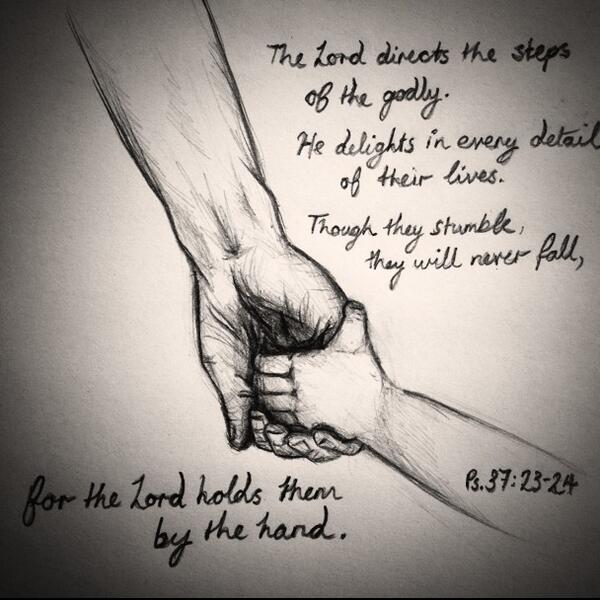 The Lord directs the steps
of the godly.
He delights in every detail
of their lives.
Though they stumble,
they will never fall,
for the Lord holds them
by the hand.
Ps. 37:23-24